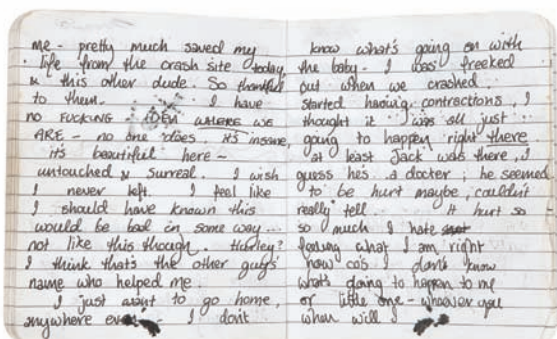 me - pretty much saved my
life from the crash site today,
& this other dude. So thankful
to them. I have
no FUCKING IDEA WHERE WE
ARE - no one does. It's insane,
it's beautiful here -
untouched & surreal. I wish
I never left. I feel like
I should have known this
would be bad in some way...
not like this though. Hurley?
I think that's the other guys'
name who helped me.
I just want to go home,
anywhere - I don't
know what's going on with
the baby. I was freeked
out when we crashed.
started having contractions, I
thought it was all just
going to happen right there.
at least Jack was there, I
guess he's a docter; he seemed
to be hurt maybe, couldn't
really tell. It hurt so
so much I hate
feeling what I am right
now cos I don't know
what's going to happen to me
or little one - whoever you
when will I